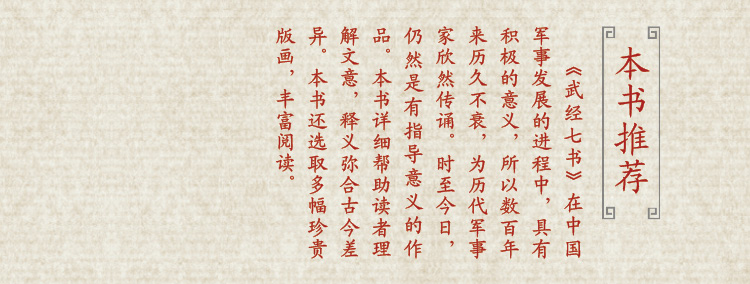 本书推荐
《武经七书》在中国
军事发展的进程中，具有
积极的意义，所以数百年
来历久不衰，为历代军事
家欣然传诵。时至今日，
仍然是有指导意义的作
品。本书详细帮助读者理
解文意，释义弥合古今差
异。本书还选取多幅珍贵
版画，丰富阅读。